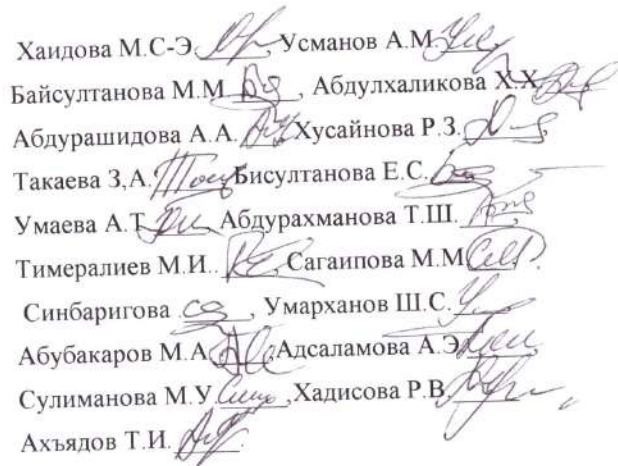 Хаидова М.С-Э. Усманов А.М.
Байсултанова М.М , Абдулхаликова Х.Х.
Абдурашидова А.А. Хусайнова Р.З.
Такаева З,А. Бисултанова Е.С.
Умаева А.Т Абдурахманова Т.Ш.
Тимералиев М.И.. , Сагаипова М.М
Синбаригова , Умарханов Ш.С.
Абубакаров М.А. ,Адсаламова А.Э.
Сулиманова М.У. ,Хадисова Р.В.
Ахъядов Т.И.